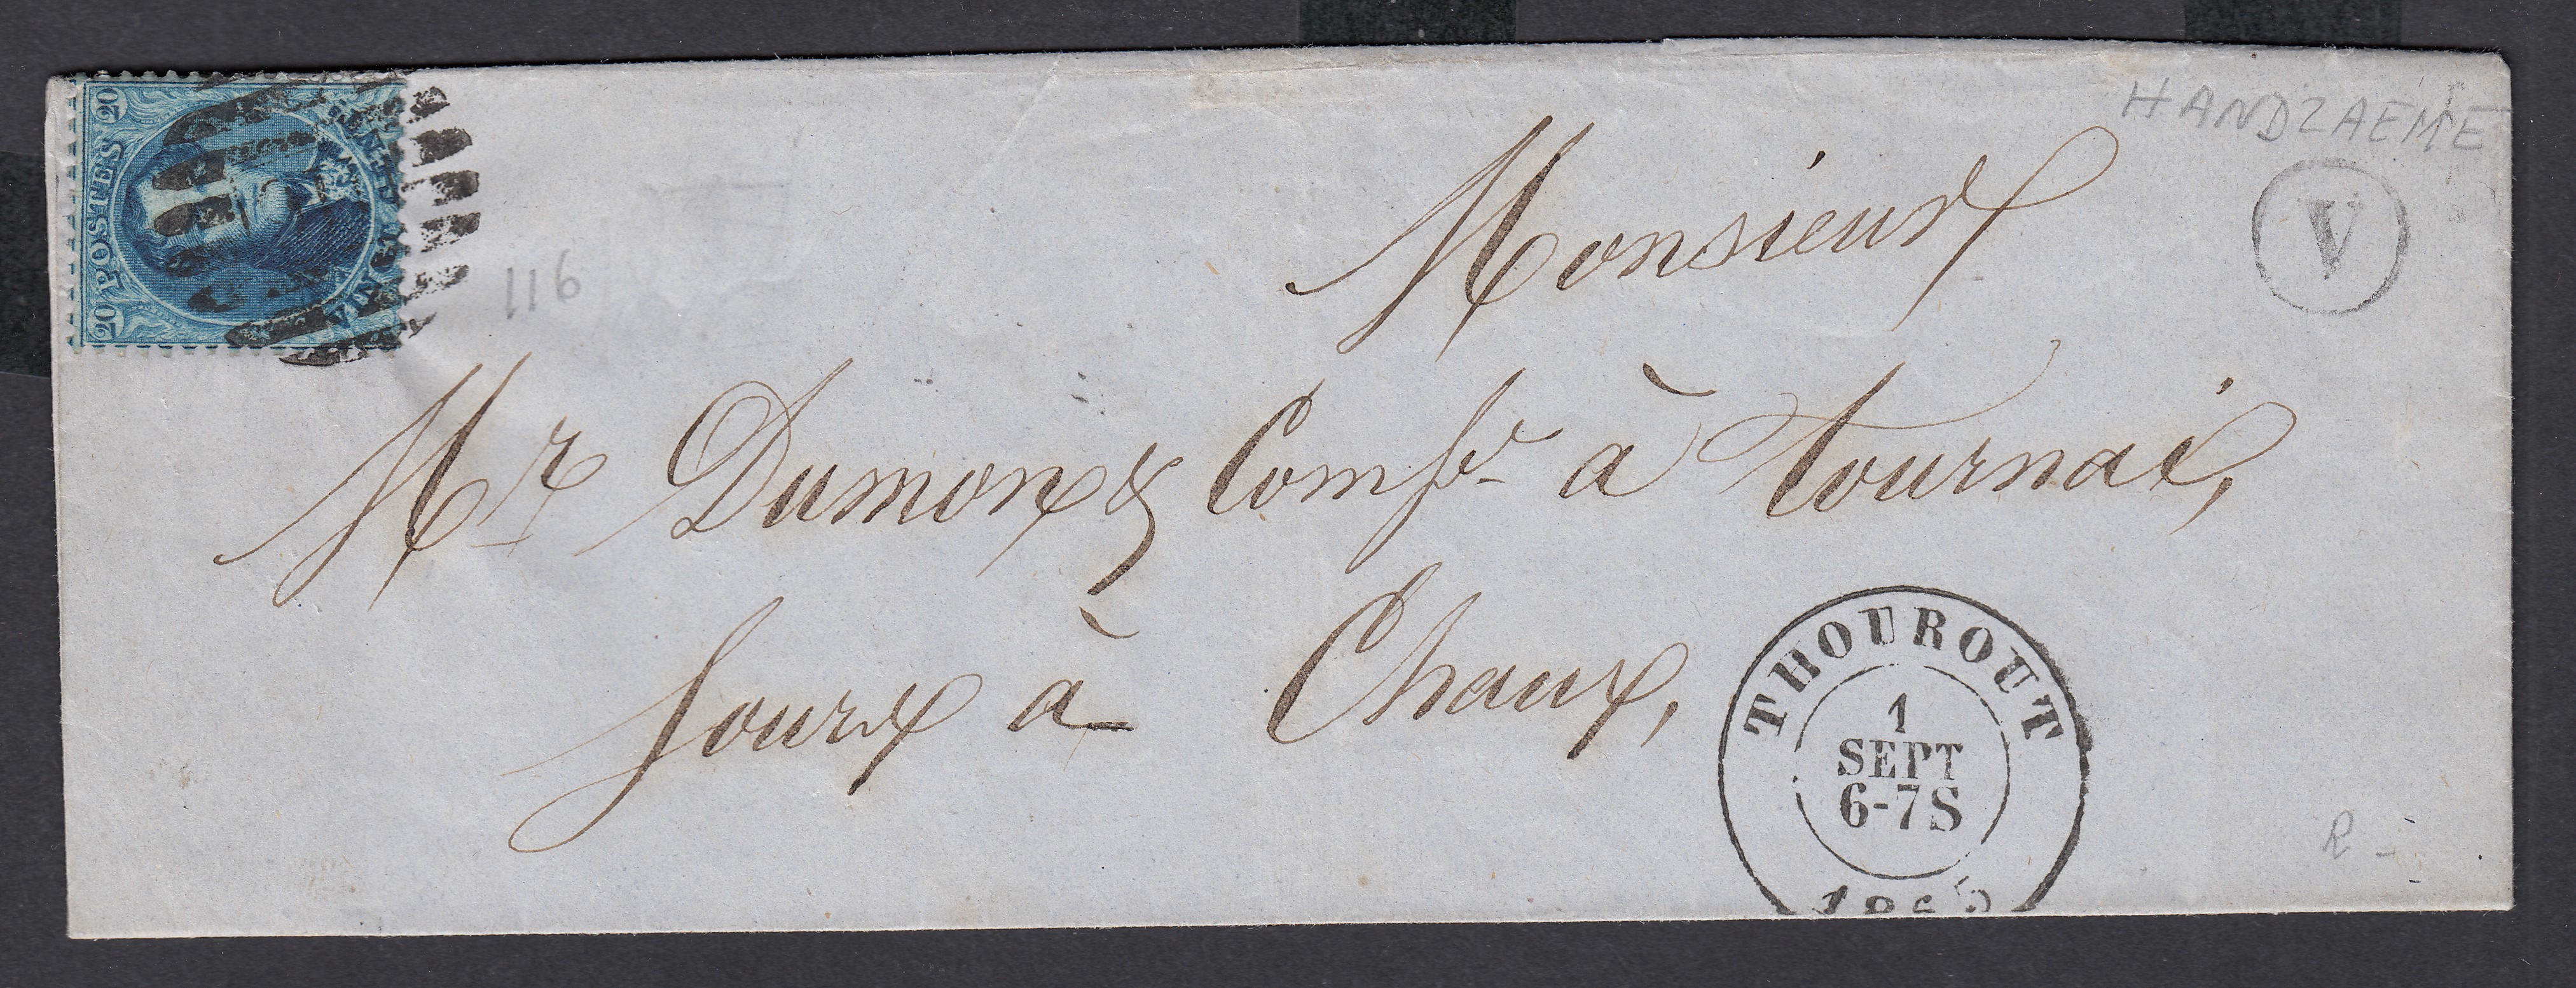 HANDZAEME
V
20 POSTES 20
VINGT
116
Monsieur
Mr Dumon & Comp. à Tournai,
fours à Chaux,
THOUROUT
1
SEPT
6-7S
R -